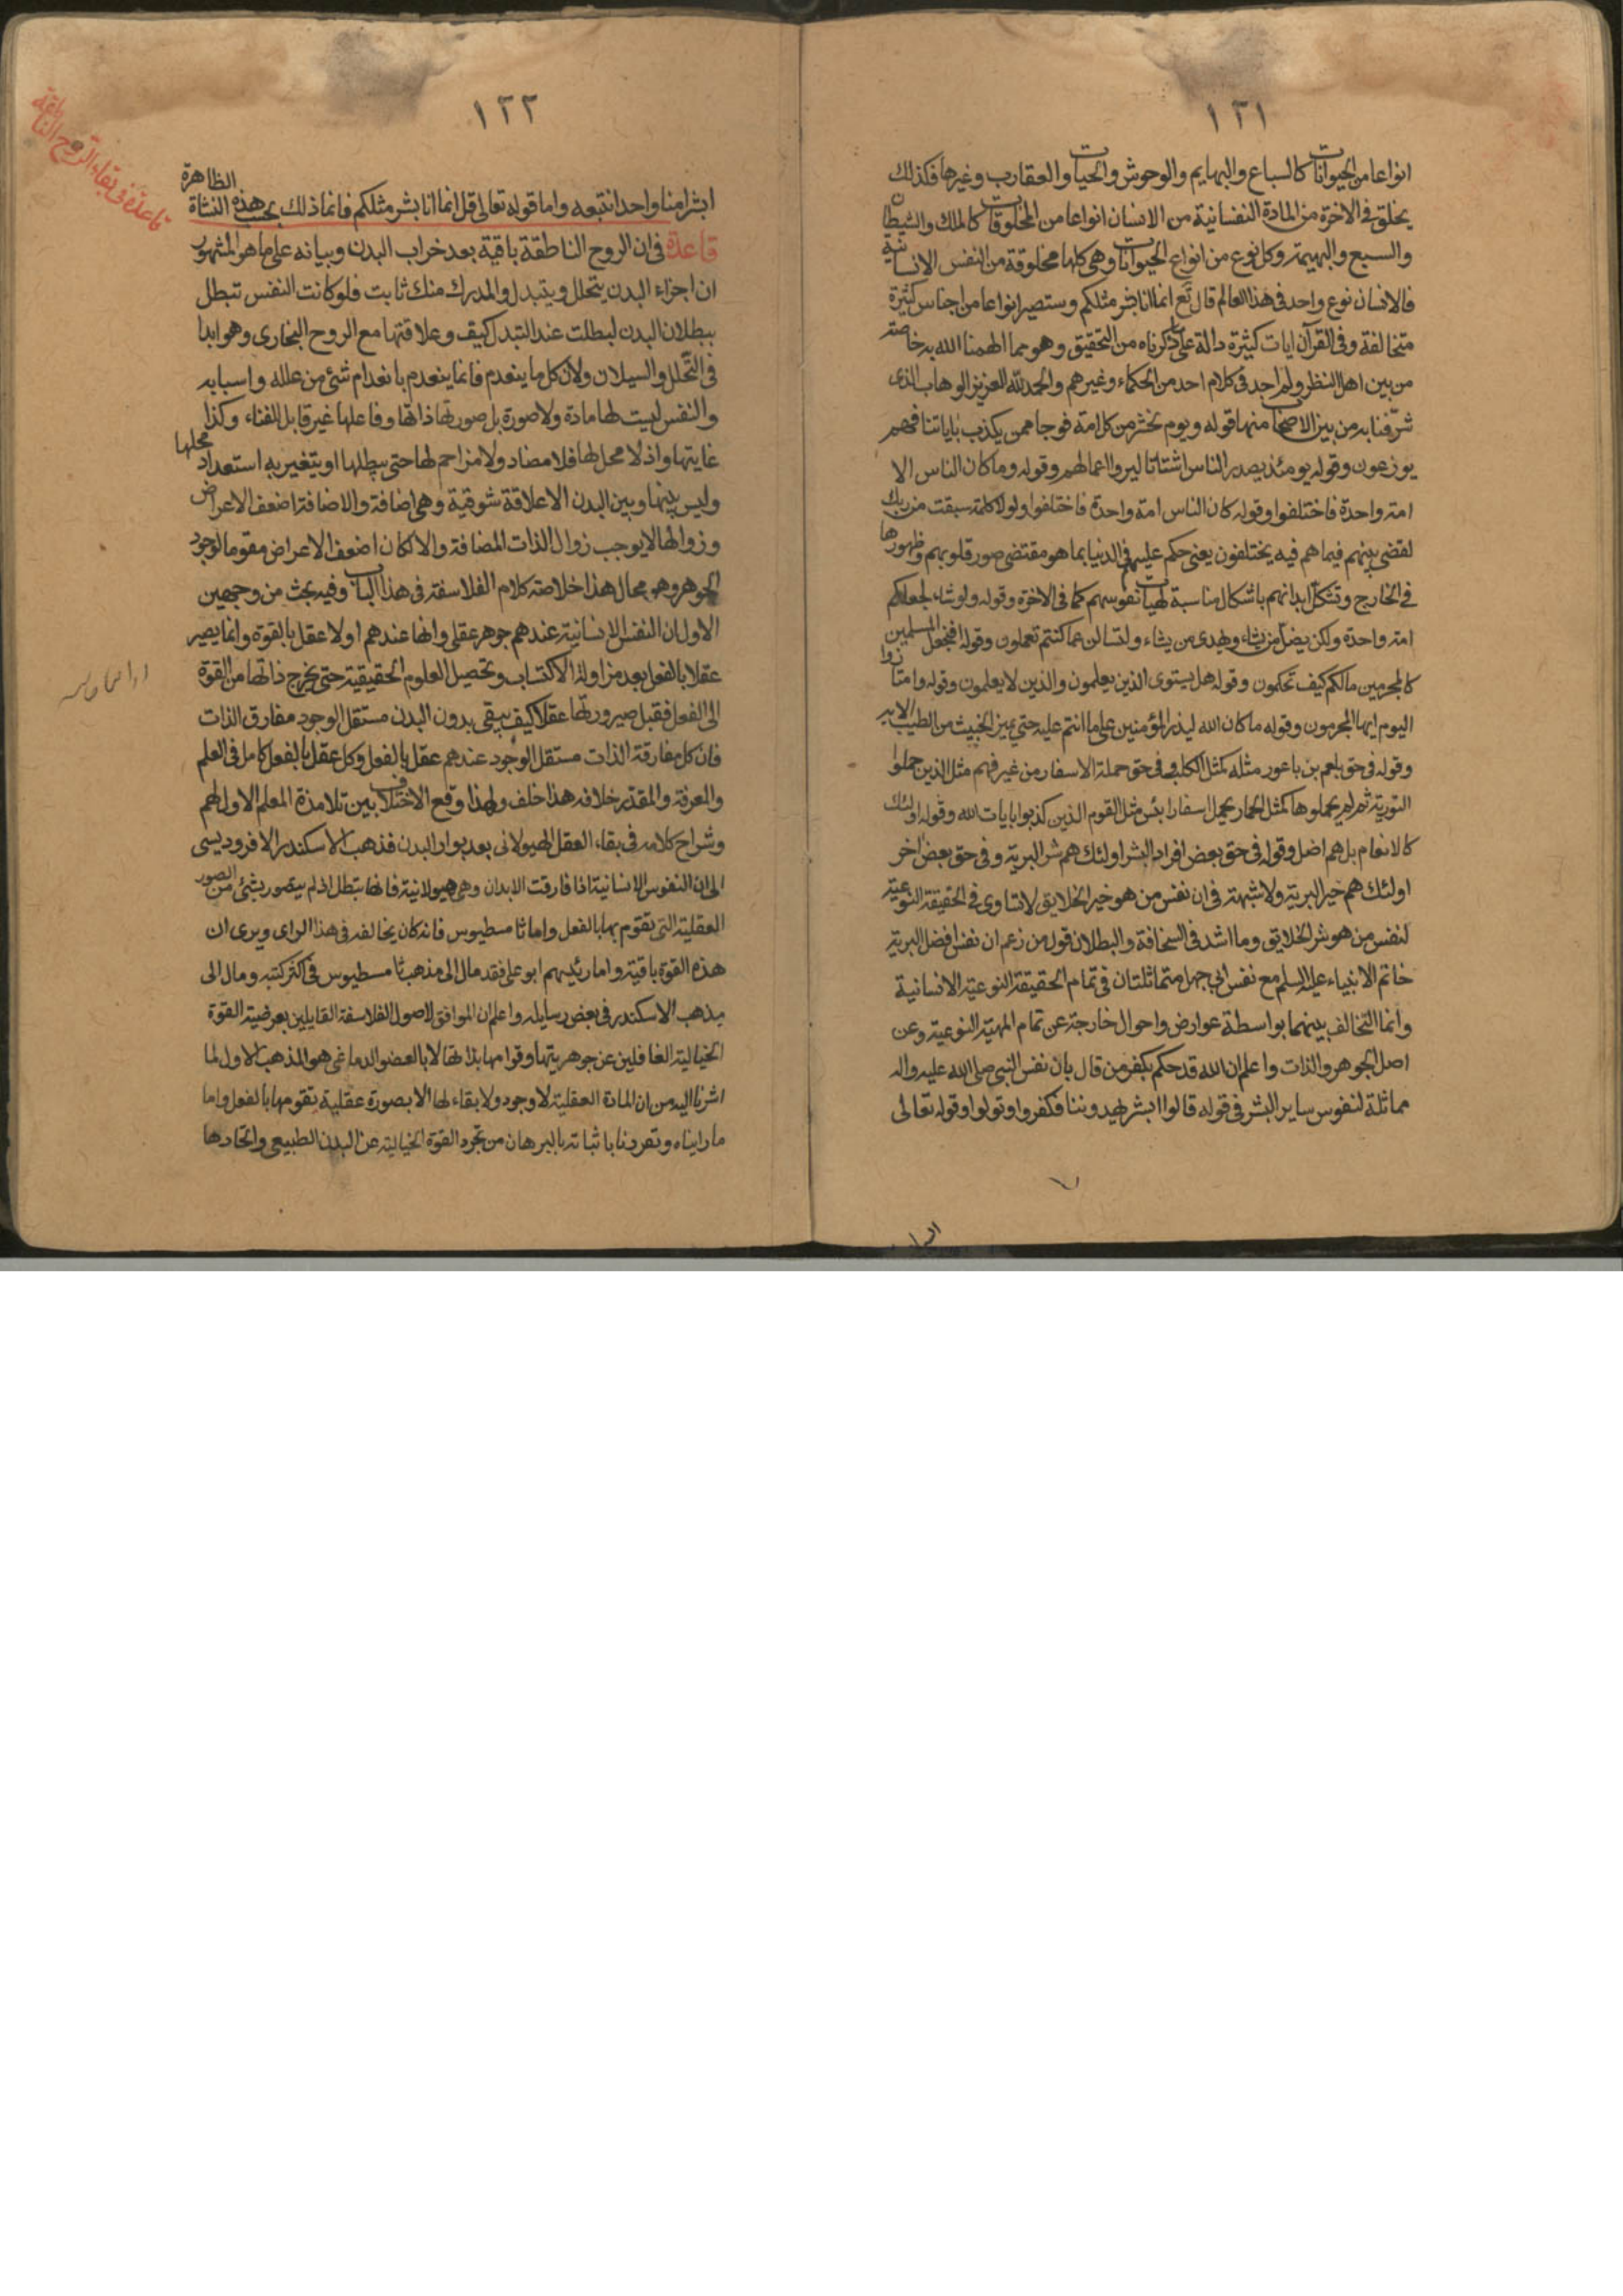 ١٢١
انواعا من الحيوانات كالسباع والبهايم والوحوش والحيات والعقارب وغيرها فكذلك
يخلق فى الاخرة من المادة النفسانية من الانسان انواعا من المخلوقات كالملك والشيطان
والسبع والبهيمة وكل نوع من انواع الحيوانات وهى كلها مخلوقة من النفس الانسانية
فالانسان نوع واحد فى هذا العالم قال تع انما انا بشر مثلكم وستصير انواعا من اجناس كثيرة
متخالفة وفى القرآن ايات كثيرة دالة على ما ذكرناه من التحقيق وهو مما الهمنا الله به خاصة
من بين اهل النظر ولم اجد فى كلام احد من الحكماء وغيرهم والحمد لله العزيز الوهاب الذى
شرّفنا به من بين الاصحاب منها قوله ويوم نحشر من كل امة فوجا ممن يكذب باياتنا فهم
يوزعون وقوله يومئذ يصدر الناس اشتاتا ليروا اعمالهم وقوله وما كان الناس الا
امة واحدة فاختلفوا وقوله كان الناس امة واحدة فاختلفوا ولولا كلمة سبقت من ربك
لقضى بينهم فيما هم فيه يختلفون يعنى حكم عليهم فى الدنيا بما هو مقتضى صور قلوبهم وظهورها
فى الخارج وتشكل ابدانهم باشكال مناسبة لهيآت نفوسهم كما فى الاخرة وقوله ولو شاء لجعلكم
امة واحدة ولكن يضل من يشاء ويهدى من يشاء ولتسالن عما كنتم تعملون وقوله افنجعل المسلمين
كالمجرمين مالكم كيف تحكمون وقوله هل يستوى الذين يعلمون والذين لا يعلمون وقوله وامتازوا
اليوم ايها المجرمون وقوله ما كان الله ليذر المؤمنين على ما انتم عليه حتى يميز الخبيث من الطيب الاية
وقوله فى حق بلعم بن باعور مثله كمثل الكلب وفى حق حملة الاسفار من غير فهم مثل الذين حملوا
التورية ثم لم يحملوها كمثل الحمار يحمل اسفارا بئس مثل القوم الذين كذبوا بايات الله وقوله اولئك
كالانعام بل هم اضل وقوله فى حق بعض افراد البشر اولئك هم شر البرية وفى حق بعض اخر
اولئك هم خير البرية ولا شبهة فى ان نفس من هو خير الخلايق لا تساوى فى الحقيقة النوعية
لنفس من هو شر الخلايق وما اشد فى السخافة والبطلان قول من زعم ان نفس افضل البرية
خاتم الانبياء عليه السلم مع نفس ابى جهل متماثلتان فى تمام الحقيقة النوعية الانسانية
وانما التخالف بينهما بواسطة عوارض واحوال خارجة عن تمام المهية النوعية وعن
اصل الجوهر والذات واعلم ان الله قد حكم بكفر من قال بان نفس النبى صلى الله عليه واله
مماثلة لنفوس ساير البشر فى قوله قالوا ابشر يهدوننا فكفروا وتولوا وقوله تعالى
١٢٢
قاعدة فى بقاء الروح الناطقة
ابشرا منا واحدا نتبعه واما قوله تعالى قل انما انا بشر مثلكم فانما ذلك بحسب هذه النشاة الظاهرة
قاعدة فى ان الروح الناطقة باقية بعد خراب البدن وبيانه على ما هو المشهور
ان اجزاء البدن يتحلل ويتبدل والمدرك منك ثابت فلو كانت النفس تبطل
ببطلان البدن لبطلت عند التبدل كيف وعلاقتها مع الروح البخارى وهو ابدا
فى التّحلل والسيلان ولان كل ما ينعدم فانما ينعدم بانعدام شئ من علله واسبابه
والنفس ليست لها مادة ولا صورة بل صورتها ذاتها وفاعلها غير قابل للفناء وكذا
غايتها واذ لا محل لها فلا مضاد ولا مزاحم لها حتى يبطلها او يتغير به استعداد محلها
وليس بينها وبين البدن الا علاقة شوقية وهى اضافة والاضافة اضعف الاعراض
وزوالها لا يوجب زوال الذات المضافة والا لكان اضعف الاعراض مقوما لوجود
الجوهر وهو محال هذا خلاصة كلام الفلاسفة فى هذا الباب وفيه بحث من وجهين
الاول ان النفس الانسانية عندهم جوهر عقلى وانها عندهم اولا عقل بالقوة وانما يصير
عقلا بالفعل بعد مزاولة الاكتساب وتحصيل العلوم الحقيقية حتى يخرج ذاتها من القوة
الى الفعل فقبل صيرورتها عقلا كيف يبقى بدون البدن مستقل الوجود مفارق الذات
فان كل مفارقة الذات مستقل الوجود عندهم عقل بالفعل وكل عقل بالفعل كامل فى العلم
والمعرفة والمقدر خلافه هذا خلف ولهذا وقع الاختلاف بين تلامذة المعلم الاول لهم
وشراح كلامه فى بقاء العقل الهيولانى بعد بوار البدن فذهب الاسكندر الافروديسى
الى ان النفوس الانسانية اذا فارقت الابدان وهى هيولانية فانها تبطل اذ لم يتصور بشئ من الصور
العقلية التى تقوم بها بالفعل واما ثامسطيوس فانه كان يخالفه فى هذا الراى ويرى ان
هذه القوة باقية واما رئيسهم ابو على فقد مال الى مذهب ثامسطيوس فى اكثر كتبه ومال الى
مذهب الاسكندر فى بعض رسايله واعلم ان الموافق لاصول الفلاسفة القايلين بعرضية القوة
الخيالية الغافلين عن جوهريتها وقوامها بذاتها لا بالعضو الدماغى هو المذهب الاول لما
اشرنا اليه من ان المادة العقلية لا وجود ولا بقاء لها الا بصورة عقلية تقومها بالفعل واما
ما رايناه وتفردنا باثباته بالبرهان من تجرد القوة الخيالية عن البدن الطبيعى واتحادها